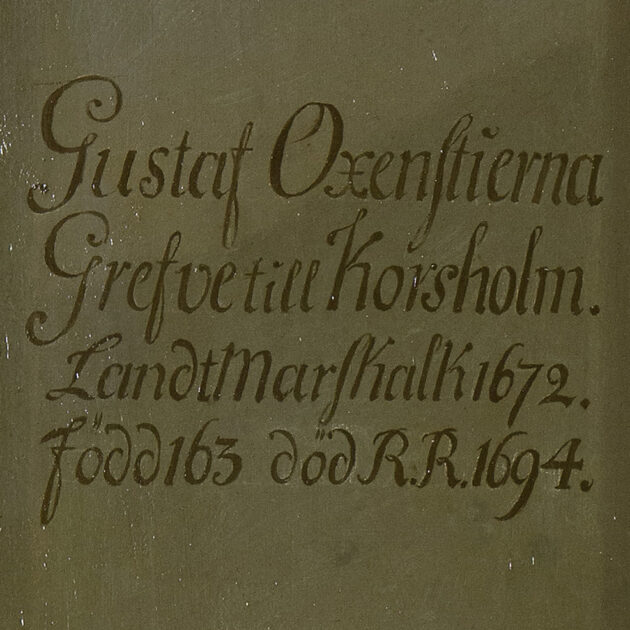 Gustaf Oxenſtierna
Grefve till Korsholm.
LandtMarſkalk 1672.
född 163 död R.R. 1694.